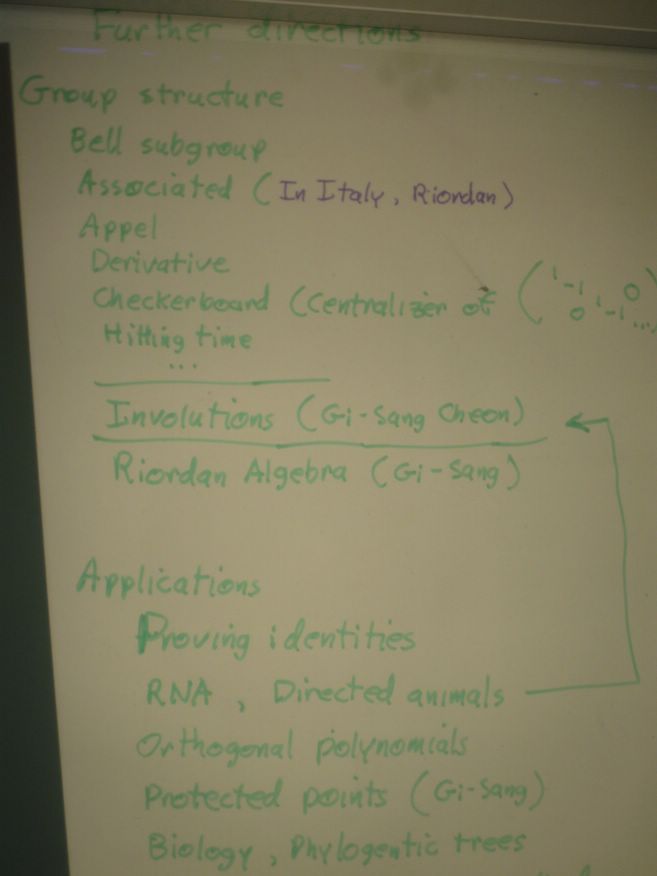 Further directions
Group structure
Bell subgroup
Associated (In Italy, Riordan)
Appel
Derivative
Checkerboard (Centralizer of ( 1 -1 0
0 1 -1 ...
Hitting time
...
Involutions (Gi-Sang Cheon)
Riordan Algebra (Gi-Sang)
Applications
Proving identities
RNA, Directed animals
Orthogonal polynomials
Protected points (Gi-Sang)
Biology, Phylogentic trees